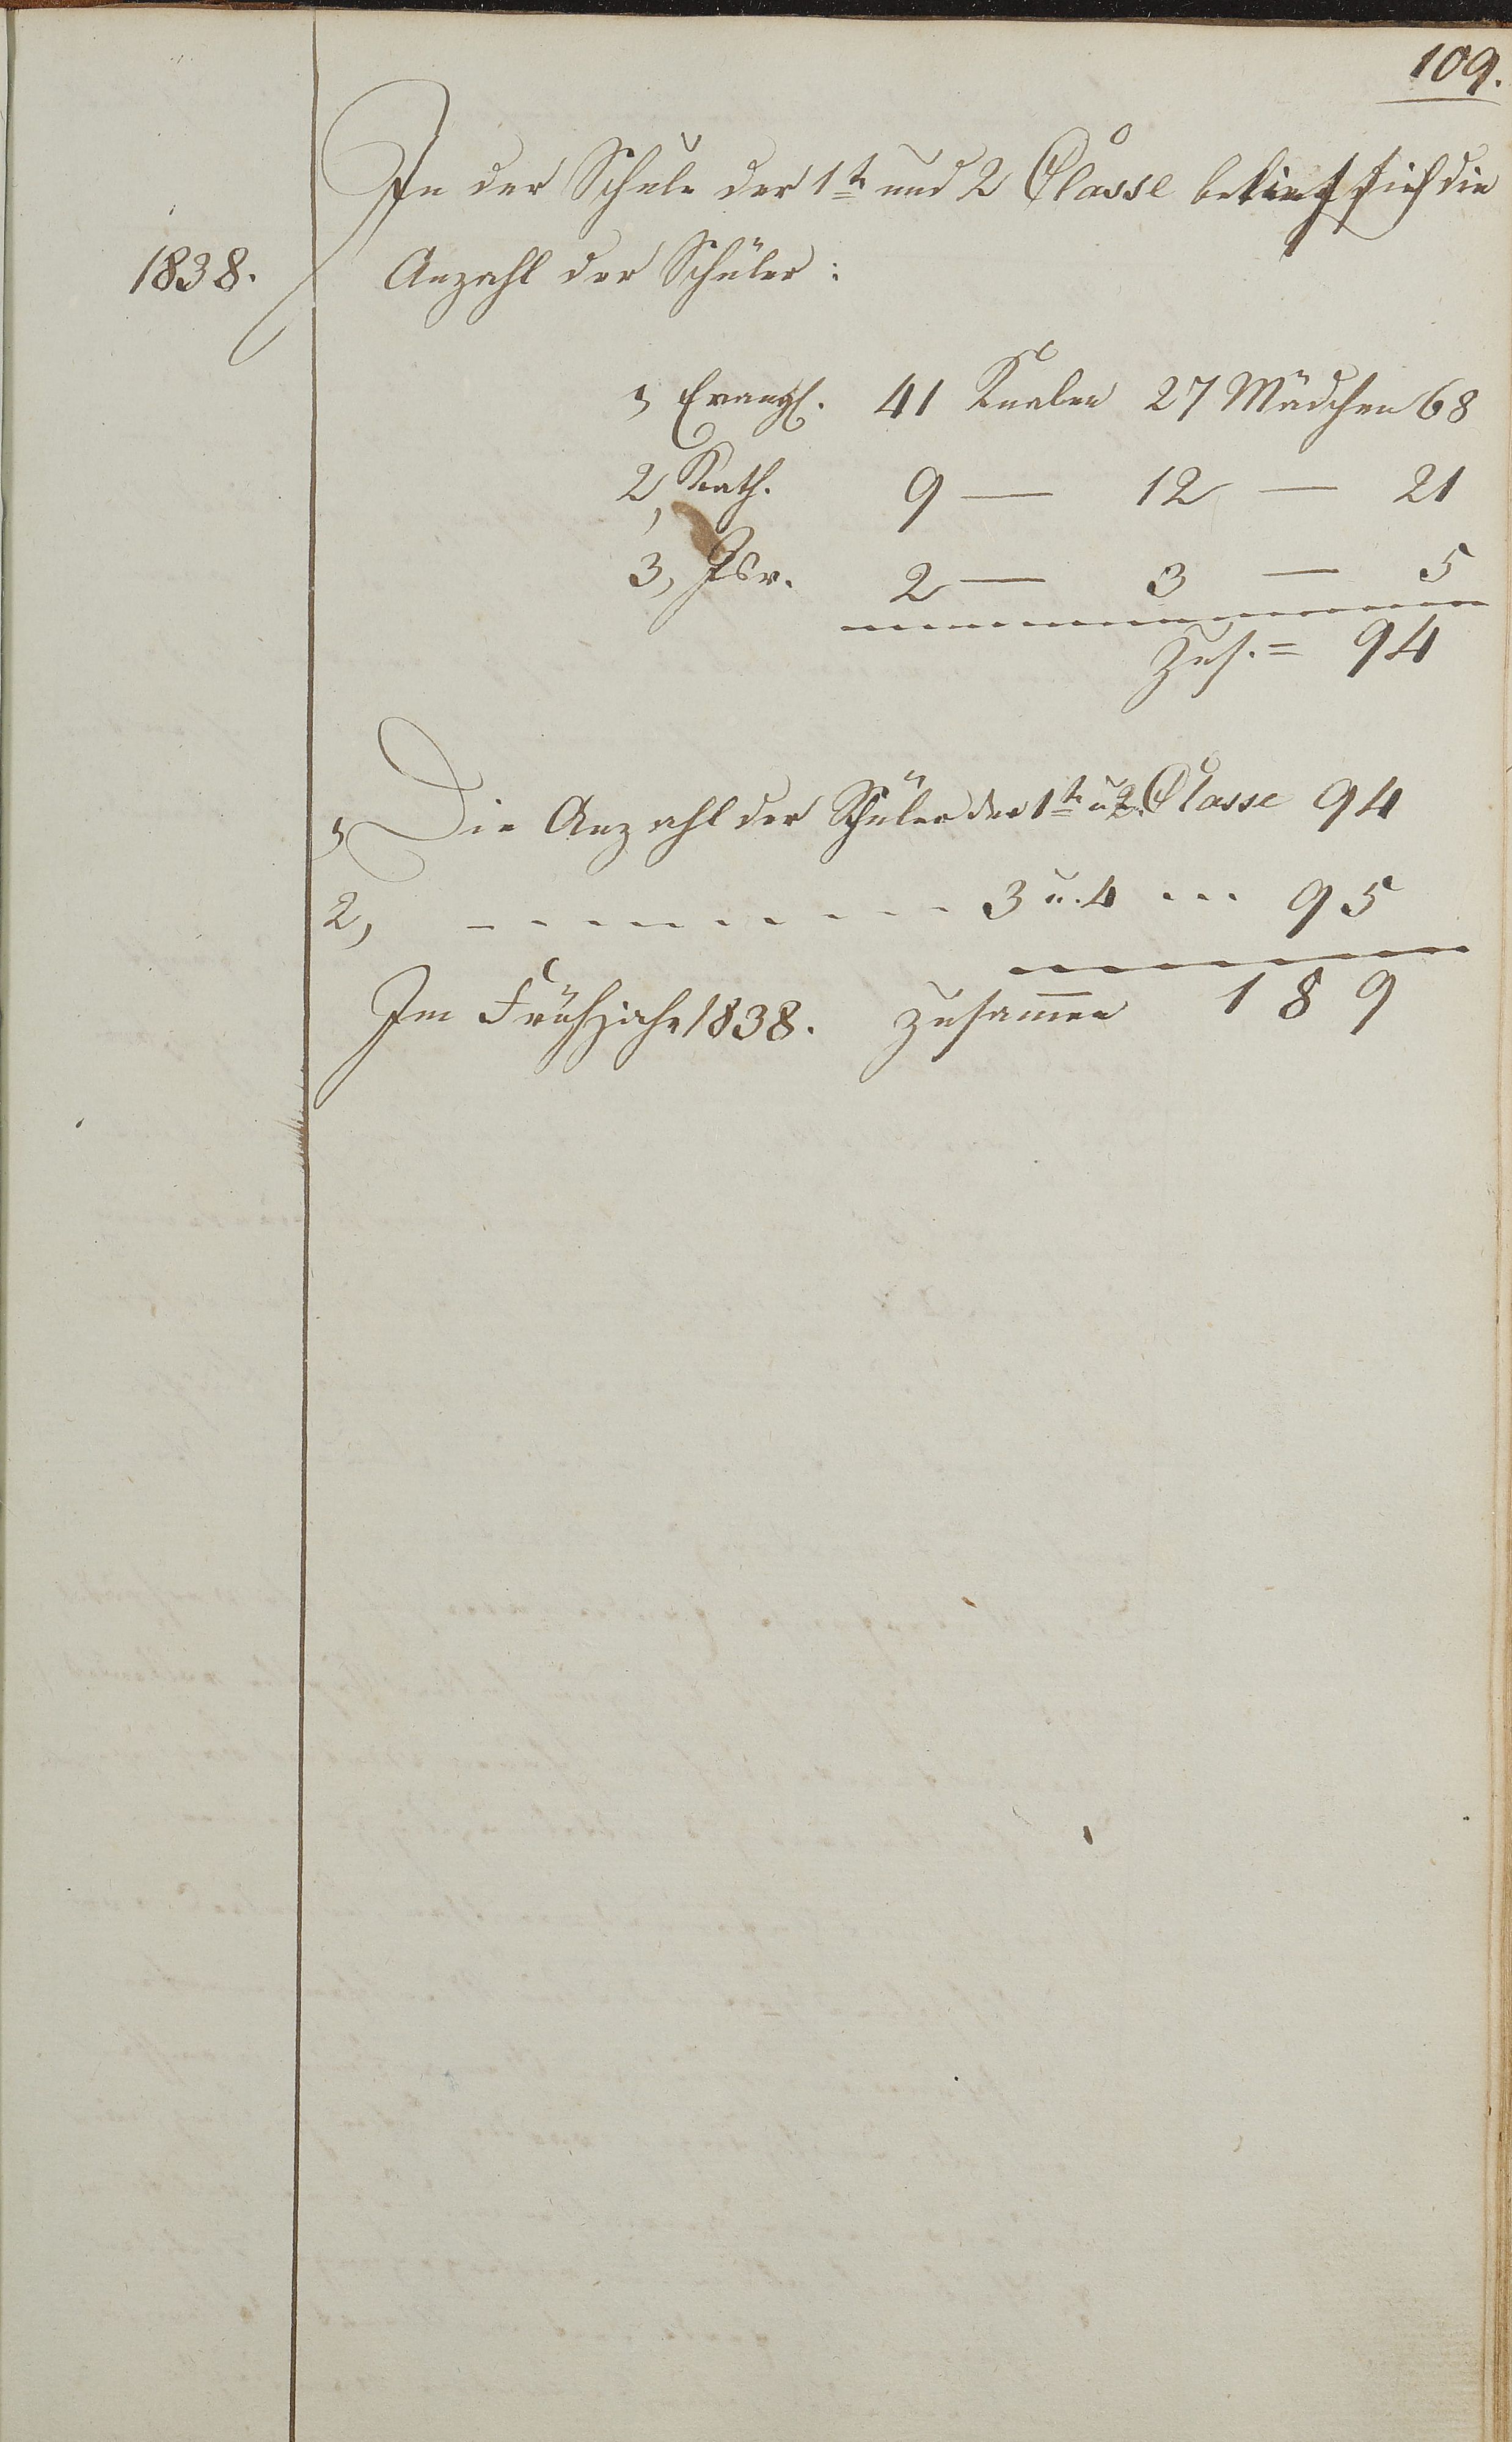 109.
In der Schule der 1te und 2 Classe belief sich die
1838. Anzahl der Schüler:
1, Evangl. 41 Knaben 27 Mädchen 68
2, Kath. 9 — 12 — 21
3, Isr. 2 — 3 — 5
Zus. = 94
1, Die Anzahl der Schüler der 1te u 2. Classe 94
2, - - - - - - - - - 3 u. 4 - - - 95
Im Frühjahr 1838. zusammen 189